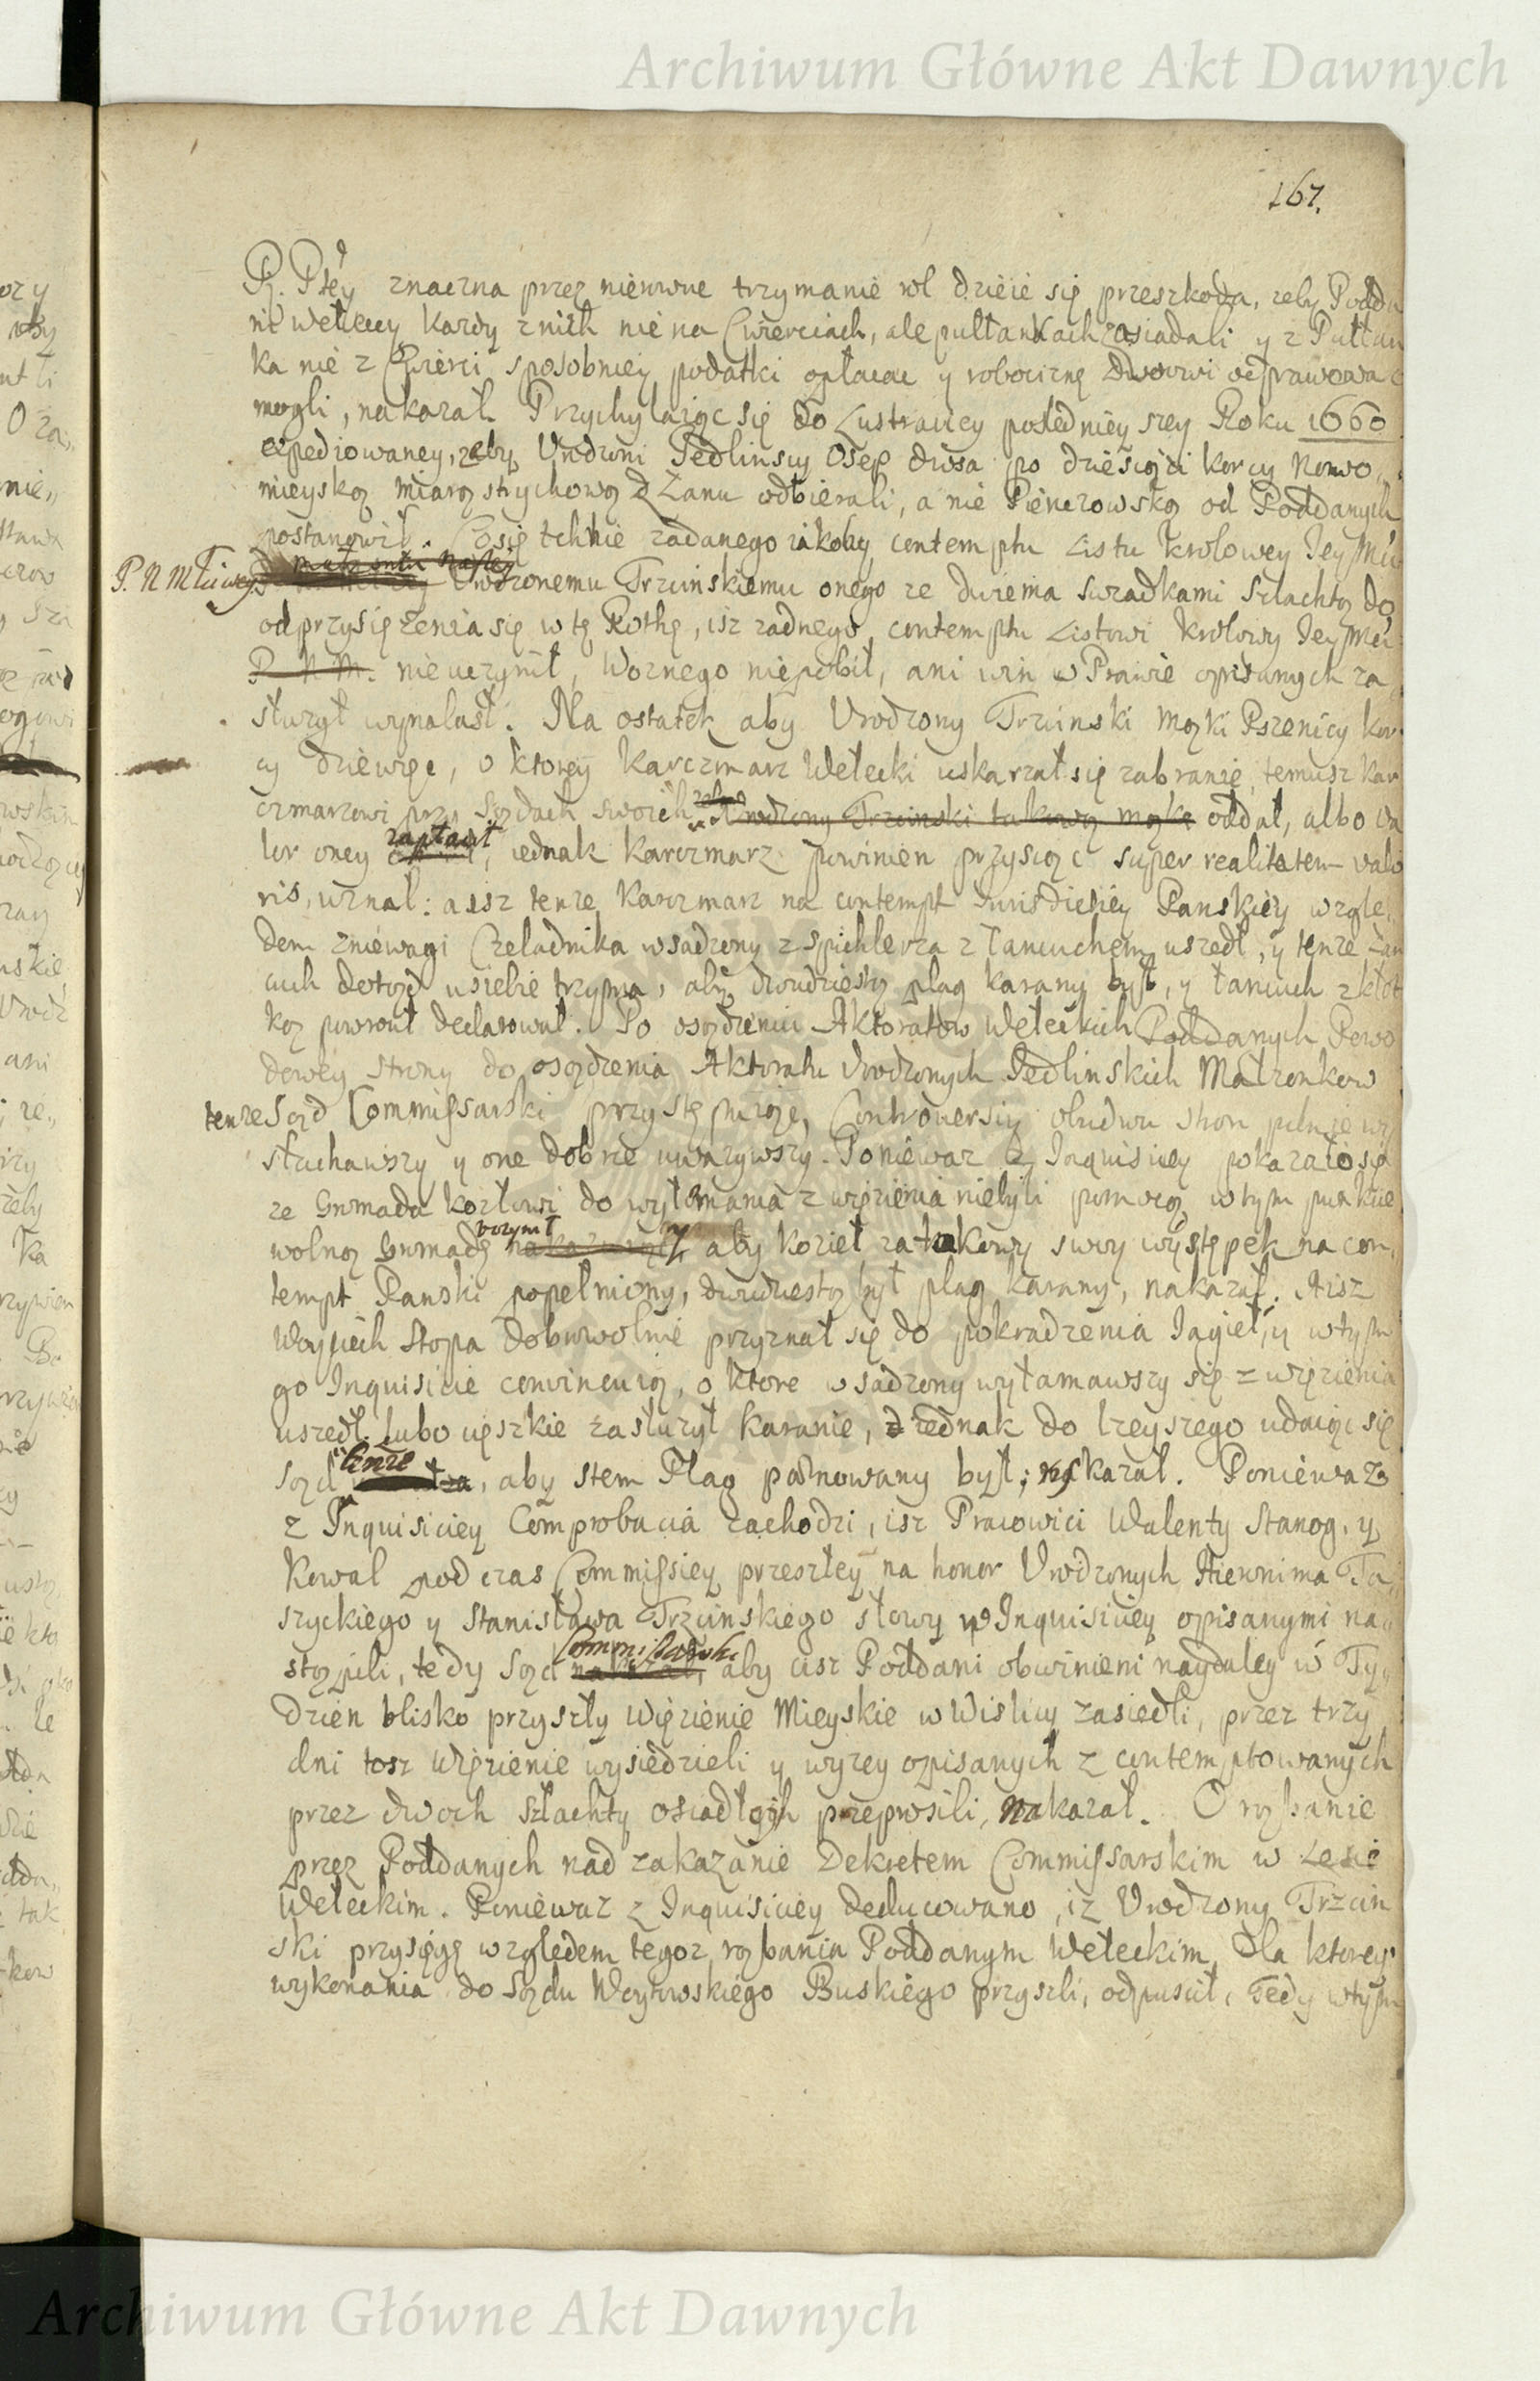 Archiwum Główne Akt Dawnych
167.
Rz. Ptey znaczna przez nierowne trzymanie rol dzieie się przeszkoda, zeby Podda
ni Wełeccy kazdy z nich nie na Cwierciach, ale pułtankach zasiadali y z Pułtan
ka nie z Cwierci sposobniey podatki opłacac y robociznę Dworowi odprawowac
mogli, nakazał. Przychylaiąc się do Lustraciey posledniey szey Roku 1660
expediowaney, zeby Urodzoni Jedlinscy Osep dwsa po dziesiąci korcy Nowo,,
mieyską miarą strychową z Łanu odbierali, a nie Pinczowską od Poddanych
postanowił. Co się tchnie zadanego iakoby contemptu Listu krolowey Jey Mci
P. N. Mściwey Małzonki Naszey Urodzonemu Trzcinskiemu onego ze dwiema swiadkami Szlachtą do
odprzysięzenia się w tę Rothę, isz zadnego contemptu Listowi krolowy Jey Mci
P. N. M. nieuczynił, Woznego niepobił, ani win w Prawie opisanych za
słuzył wynalasł. Na ostatek aby Urodzony Trzcinski Mąki Pszenicy kor
cy dziewięc, o ktorey karczmarz Wełecki uskarzał się zabranie, temusz kar
czmarzowi przy Sądach swoich Urodzony Trzcinski takową mąkę oddał, albo va
lor oney zapłacił, iednak karczmarz powinien przysiąc super realitatem valo
ris, uznał: a isz tenze karczmarz na contempt Jurisdictiey Panskiey wzglę,
dem zniewagi Czeladnika wsadzony z spichlerza z łancuchem uszedł, y tenze Łan
cuch dotąd u siebie trzyma, aby dwudziestą plag karany był, y łancuch z kłot
ką powrocił declarował. Po osądzeniu Aktoratow Wełeckich Poddanych Powo
dowey strony do osądzenia Aktoratu Urodzonych Jedlinskich Małzonkow
tenze Sąd Commissarski przystępuiąc, Controversiy obudwu stron pilnie wy
słuchawszy y one dobrze uwazywszy. Poniewaz z Inquisiciey pokazało się
ze Gromada kozłowi do wyłomania z więzienia niebyli pomocą, w tym punkcie
wolną Gromadę uczynił aby kozieł za takowy swoy występek na con,
tempt Panski popełniony, dwudziestą był plag karany, nakazał. A isz
Woyciech Stopa dobrowolnie przyznał się do pokradzenia Jagieł, y w tym
go Inquisicie convincuią, o ktore wsadzony wyłamawszy się z więzienia
uszedł, lubo cięszkie zasłuzył karanie, iednak do lzeyszego udaiąc się
Sąd tenze, aby stem Plag pasnowany był, nakazał. Poniewaz
z Inquisiciey Comprobacia zachodzi, isz Pracowici Walenty Stanog, y
Kowal pod czas Commissiey przeszłey na honor Urodzonych Hieronima Ta
szyckiego y Stanisława Trzcinskiego słowy w Inquisiciey opisanymi na
stąpili, tedy Sąd Commissarski aby cisz Poddani obwinieni naydaley w Ty
dzien blisko przyszły Więzienie Mieyskie w Wislicy zasiedli, przez trzy
dni tosz Więzienie wysiedzieli y wyzey opisanych z contemptowanych
przez dwoch szlachty osiadłych przeprosili, nakazał. O rąbanie
przez Poddanych nad zakazanie Dekretem Commissarskim w Lesie
Wełeckim. Poniewaz z Inquisiciey deducowano, iz Urodzony Trzcin
ski przysięgę względem tegoz rąbania Poddanym Wełeckim, dla ktorey
wykonania do Sądu Woytowskiego Buskiego przyszli, odpuscił, Tedy w tym
Archiwum Główne Akt Dawnych